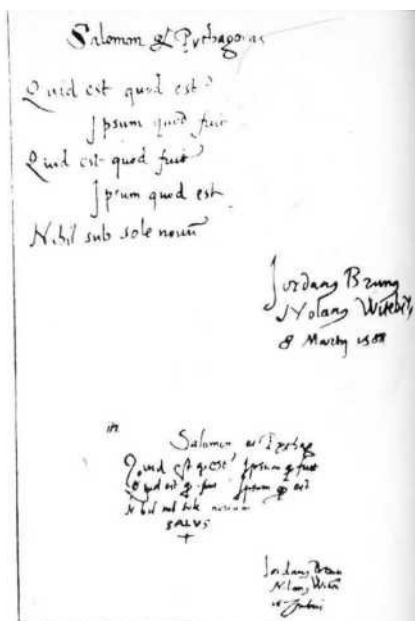 Salomon et Pythagoras
Quid est quod est?
Ipsum quod fuit
Quid est quod fuit
Ipsum quod est
Nihil sub sole nouū
Jordanꝰ Brunꝰ
Nolanꝰ Witeb
8 Martij 1588
Salomon et Pythag
Quid est q est? Ipsum q fuit
Quid est q fuit Ipsum q est
Nihil sub sole nouum
SALVS
Jordanꝰ Brun
Nolanꝰ